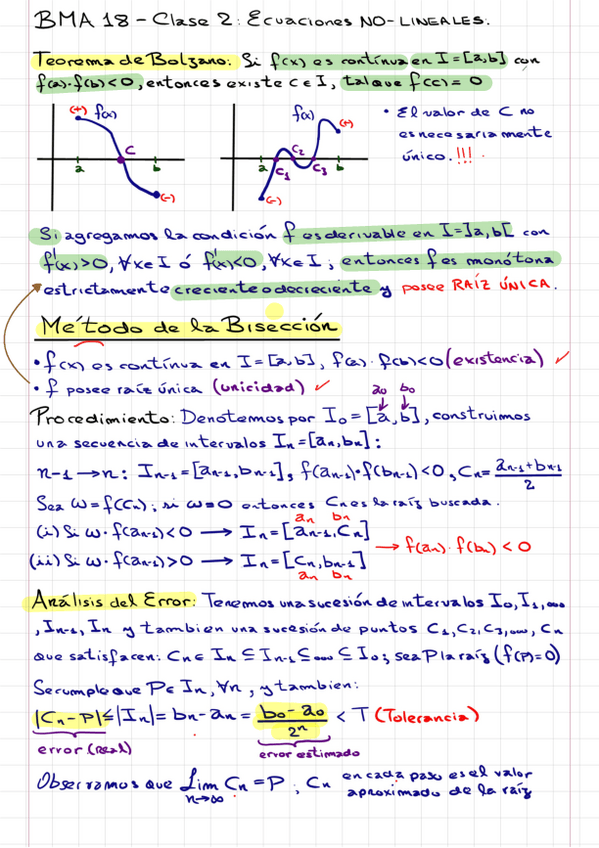 BMA 18 - Clase 2: Ecuaciones NO-LINEALES.
Teorema de Bolzano: Si f(x) es contínua en I=[a,b] con
f(a)·f(b)<0, entonces existe c∈I, tal que f(c)=0
(+) f(x)
c
a b
(-)
f(x)
(+)
c₂
a c₁ c₃ b
(-)
• El valor de C no
es necesariamente
único.!!!.
Si agregamos la condición f es derivable en I=]a,b[ con
f'(x)>0, ∀x∈I ó f'(x)<0, ∀x∈I; entonces f es monótona
estrictamente creciente o decreciente y posee RAÍZ ÚNICA.
Método de la Bisección
• f(x) es contínua en I=[a,b], f(a)·f(b)<0 (existencia) ✓
• f posee raíz única (unicidad) ✓
a₀ b₀
Procedimiento: Denotemos por I₀=[a,b], construimos
una secuencia de intervalos Iₙ=[aₙ,bₙ]:
n-1→n: Iₙ₋₁=[aₙ₋₁,bₙ₋₁], f(aₙ₋₁)·f(bₙ₋₁)<0, Cₙ=(aₙ₋₁+bₙ₋₁)/2
Sea ω=f(Cₙ); si ω=0 entonces Cₙ es la raíz buscada.
aₙ bₙ
(i) Si ω·f(aₙ₋₁)<0 → Iₙ=[aₙ₋₁,Cₙ]
→ f(aₙ)·f(bₙ)<0
(ii) Si ω·f(aₙ₋₁)>0 → Iₙ=[Cₙ,bₙ₋₁]
aₙ bₙ
Análisis del Error: Tenemos una sucesión de intervalos I₀,I₁,...
,Iₙ₋₁,Iₙ y tambien una sucesión de puntos C₁,C₂,C₃,...,Cₙ
que satisfacen: Cₙ∈Iₙ⊆Iₙ₋₁⊆...⊆I₀; sea P la raíz (f(P)=0)
Se cumple que P∈Iₙ,∀n, y tambien:
|Cₙ-P|≤|Iₙ|=bₙ-aₙ=(b₀-a₀)/2ⁿ < T (Tolerancia)
error (real) error estimado
Observamos que Lim n→∞ Cₙ=P; Cₙ en cada paso es el valor
aproximado de la raíz